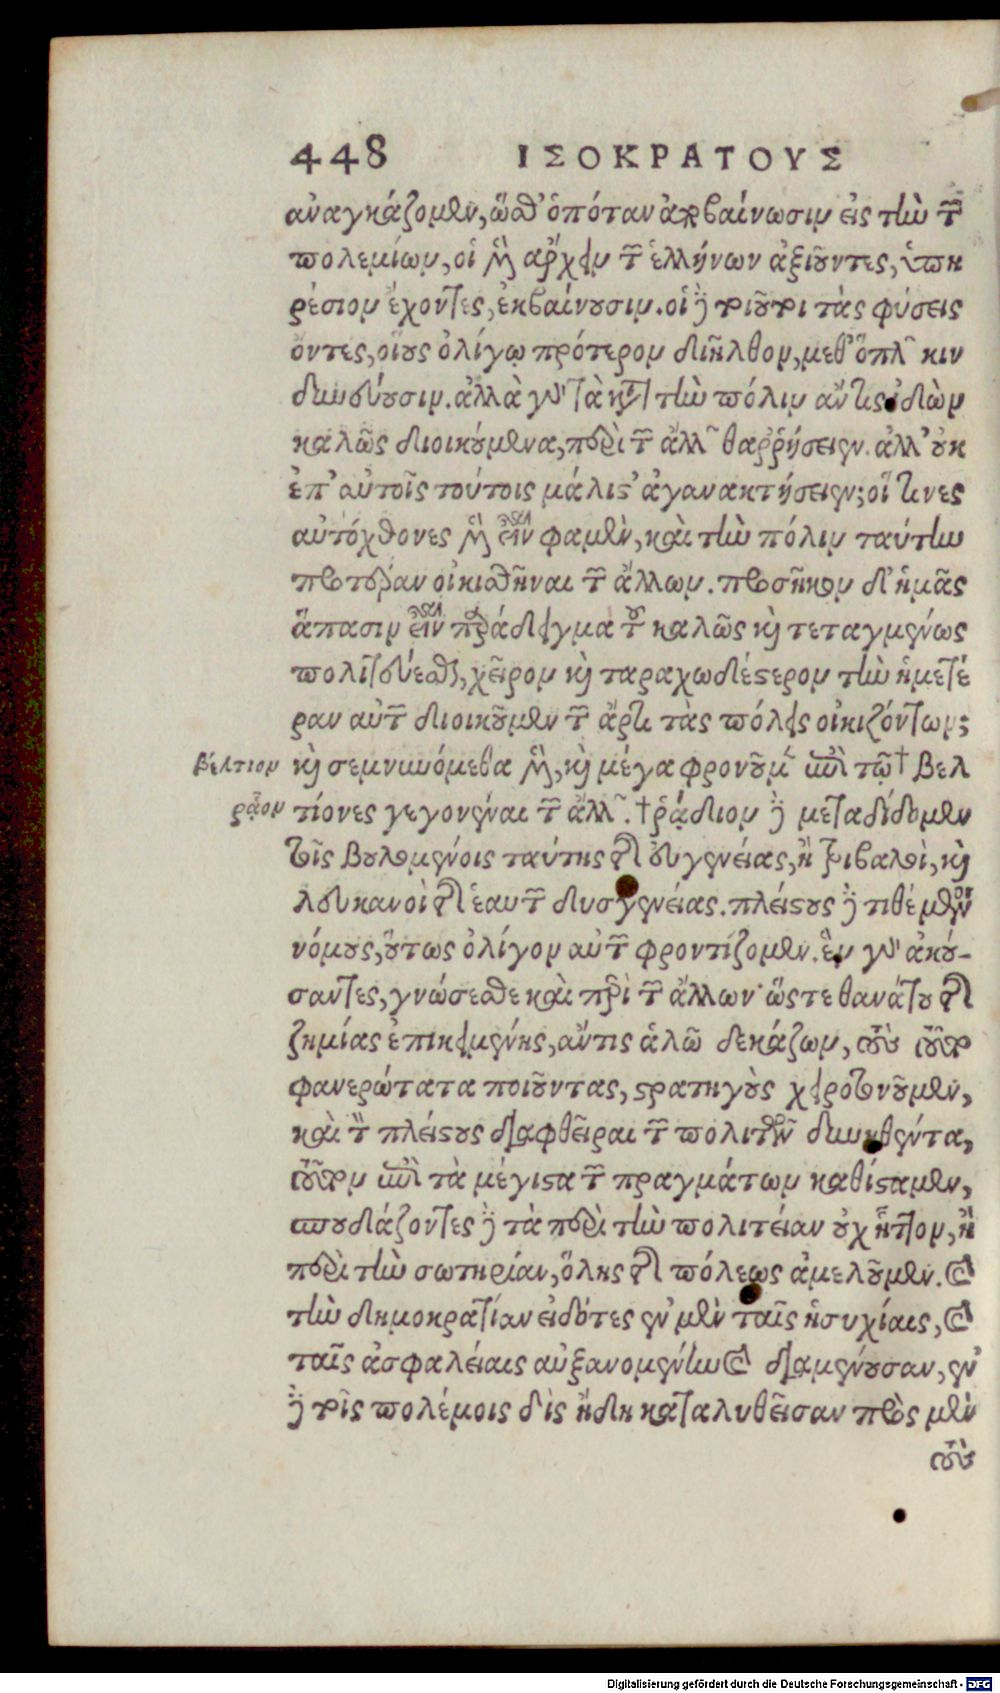 448 ΙΣΟΚΡΑΤΟΥΣ
ἀναγκάζομεν, ὥσθ' ὁπόταν ἀποβαίνωσιν εἰς τὴν τῶν
πολεμίων, οἱ μὲν ἄρχειν τῶν ἑλλήνων ἀξιοῦντες, ὑπη
ρέσιον ἔχοντες, ἐκβαίνουσιν. οἱ δὲ τοιοῦτοι τὰς φύσεις
ὄντες, οἵους ὀλίγῳ πρότερον διῆλθον, μεθ' ὅπλων κιν
δυνεύουσιν. ἀλλὰ γὰρ τὰ κατὰ τὴν πόλιν ἄν τις ἰδὼν
καλῶς διοικούμενα, περὶ τῶν ἄλλων θαῤῥήσειεν. ἀλλ' οὐκ
ἐπ' αὐτοῖς τούτοις μάλιστ' ἀγανακτήσειεν; οἵ τινες
αὐτόχθονες μὲν εἶναι φαμὲν, καὶ τὴν πόλιν ταύτην
προτέραν οἰκισθῆναι τῶν ἄλλων. προσῆκον δ' ἡμᾶς
ἅπασιν εἶναι παράδειγμα τοῦ καλῶς καὶ τεταγμένως
πολιτεύεσθαι, χεῖρον καὶ ταραχωδέστερον τὴν ἡμετέ
ραν αὐτῶν διοικοῦμεν τῶν ἄρτι τὰς πόλεις οἰκιζόντων;
βέλτιον καὶ σεμνυνόμεθα μὲν, καὶ μέγα φρονοῦμεν ἐπὶ τῷ † βελ
ρᾷον τίονες γεγονέναι τῶν ἄλλων. † ῥᾴδιον δὲ μεταδίδομεν
τοῖς βουλομένοις ταύτης τῆς εὐγενείας, ἢ τριβαλοὶ, καὶ
λευκανοὶ τῆς ἑαυτῶν δυσγενείας. πλείστους δὲ τιθέμενοι
νόμους, οὕτως ὀλίγον αὐτῶν φροντίζομεν. ἓν γὰρ ἀκού-
σαντες, γνώσεσθε καὶ περὶ τῶν ἄλλων· ὥστε θανάτου τῆς
ζημίας ἐπικειμένης, ἄν τις ἁλῷ δεκάζων, τοὺς τοῦτο
φανερώτατα ποιοῦντας, στρατηγοὺς χειροτονοῦμεν,
καὶ τὸν πλείστους διαφθεῖραι τῶν πολιτῶν δυνηθέντα,
τοῦτον ἐπὶ τὰ μέγιστα τῶν πραγμάτων καθίσταμεν,
σπουδάζοντες δὲ τὰ περὶ τὴν πολιτείαν οὐχ ἧττον, ἢ
περὶ τὴν σωτηρίαν, ὅλης τῆς πόλεως ἀμελοῦμεν. καὶ
τὴν δημοκρατίαν εἰδότες ἐν μὲν ταῖς ἡσυχίαις, καὶ
ταῖς ἀσφαλείαις αὐξανομένην καὶ διαμένουσαν, ἐν
δὲ τοῖς πολέμοις δὶς ἤδη καταλυθεῖσαν πρὸς μὲν
τοὺς
Digitalisierung gefördert durch die Deutsche Forschungsgemeinschaft - DFG